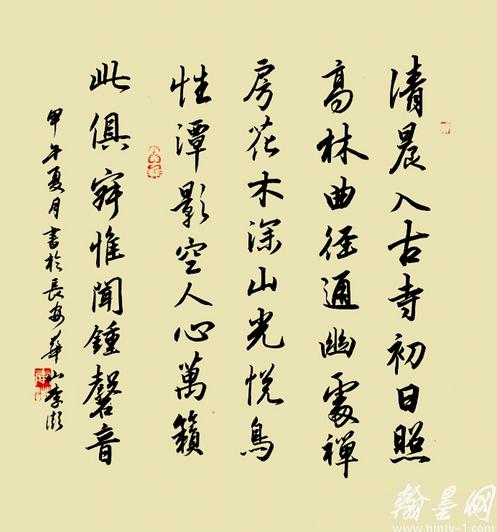 清晨入古寺初日照
高林曲径通幽處禪
房花木深山光悦鳥
性潭影空人心萬籟
此俱寂惟聞鍾磬音
甲午夏月書於長安華山李
翰墨网
www.hmtv-1.com